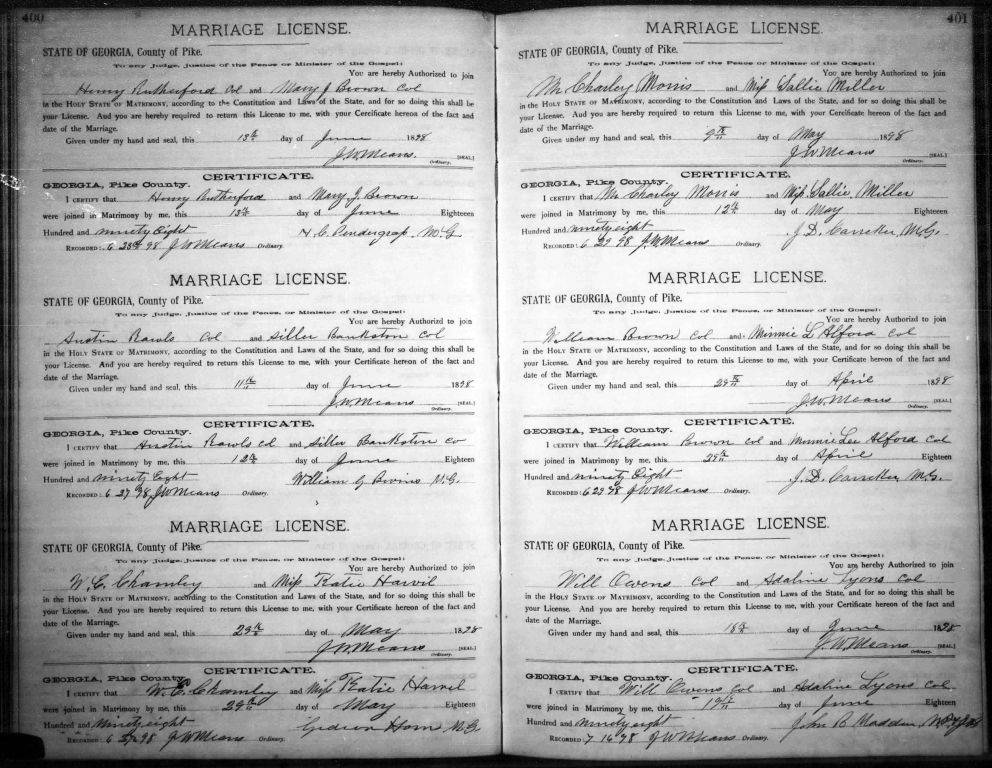 400
MARRIAGE LICENSE.
STATE OF GEORGIA, County of Pike.
To any Judge, Justice of the Peace or Minister of the Gospel:
You are hereby Authorized to join
Henry Rutherford Col and Mary J Brown Col
in the HOLY STATE OF MATRIMONY, according to the Constitution and Laws of the State, and for so doing this shall be
your License. And you are hereby required to return this License to me, with your Certificate hereon of the fact and
date of the Marriage.
Given under my hand and seal, this 13th day of June 1898
J.W. Means. [SEAL.]
Ordinary.
CERTIFICATE.
GEORGIA, Pike County.
I CERTIFY that Henry Rutherford and Mary J. Brown
were joined in Matrimony by me, this 13th day of June Eighteen
Hundred and ninety Eight H. C. Pendergrap. M.G
RECORDED: 6 28 98 J W Means Ordinary.
MARRIAGE LICENSE.
STATE OF GEORGIA, County of Pike.
To any Judge, Justice of the Peace or Minister of the Gospel:
You are hereby Authorized to join
Austin Rawls Col and Siller Bankston Col
in the HOLY STATE OF MATRIMONY, according to the Constitution and Laws of the State, and for so doing this shall be
your License. And you are hereby required to return this License to me, with your Certificate hereon of the fact and
date of the Marriage.
Given under my hand and seal, this 11th day of June 1898
J.W. Means [SEAL.]
Ordinary.
CERTIFICATE.
GEORGIA, Pike County.
I CERTIFY that Austin Rawls Col and Siller Bankston Co
were joined in Matrimony by me, this 12th day of June Eighteen
Hundred and ninety Eight William G Bivins M.G.
RECORDED: 6 27 98 J W Means Ordinary.
MARRIAGE LICENSE.
STATE OF GEORGIA, County of Pike.
To any Judge, Justice of the Peace, or Minister of the Gospel:
You are hereby Authorized to join
W. C. Chamley and Miss Katie Harvil
in the HOLY STATE OF MATRIMONY, according to the Constitution and Laws of the State, and for so doing this shall be
your License. And you are hereby required to return this License to me, with your Certificate hereon of the fact and
date of the Marriage.
Given under my hand and seal, this 29th day of May 1898
J. W. Means [SEAL.]
Ordinary.
CERTIFICATE.
GEORGIA, Pike County.
I CERTIFY that W. C. Chamley and Miss Katie Harvil
were joined in Matrimony by me, this 29th day of May Eighteen
Hundred and Ninety eight Gideon Horn M.G.
RECORDED: 6 27 98 J W Means Ordinary.
401
MARRIAGE LICENSE.
STATE OF GEORGIA, County of Pike.
To any Judge, Justice of the Peace or Minister of the Gospel:
You are hereby Authorized to join
Mr Charley Morris and Miss Sallie Miller
in the HOLY STATE OF MATRIMONY, according to the Constitution and Laws of the State, and for so doing this shall be
your License. And you are hereby required to return this License to me, with your Certificate hereon of the fact and
date of the Marriage.
Given under my hand and seal, this 9th day of May 1898
J. W. Means [SEAL.]
Ordinary.
CERTIFICATE.
GEORGIA, Pike County.
I CERTIFY that Mr Charley Morris and Miss Sallie Miller
were joined in Matrimony by me, this 12th day of May Eighteen
Hundred and ninety eight J. D. Carreker, M.G.
RECORDED: 6 29 98 J. W. Means Ordinary.
MARRIAGE LICENSE.
STATE OF GEORGIA, County of Pike.
To any Judge, Justice of the Peace or Minister of the Gospel:
You are hereby Authorized to join
William Brown Col and Minnie L Alford Col
in the HOLY STATE OF MATRIMONY, according to the Constitution and Laws of the State, and for so doing this shall be
your License. And you are hereby required to return this License to me, with your Certificate hereon of the fact and
date of the Marriage.
Given under my hand and seal, this 29th day of April 1898
J. W. Means [SEAL.]
Ordinary.
CERTIFICATE.
GEORGIA, Pike County.
I CERTIFY that William Brown Col and Minnie Lee Alford Col
were joined in Matrimony by me, this 29th day of April Eighteen
Hundred and ninety Eight J. D. Carreker, M.G.
RECORDED: 6 29 98 J W Means Ordinary.
MARRIAGE LICENSE.
STATE OF GEORGIA, County of Pike.
To any Judge, Justice of the Peace or Minister of the Gospel:
You are hereby Authorized to join
Will Owens Col and Adaline Lyons Col
in the HOLY STATE OF MATRIMONY, according to the Constitution and Laws of the State, and for so doing this shall be
your License. And you are hereby required to return this License to me, with your Certificate hereon of the fact and
date of the Marriage.
Given under my hand and seal, this 18th day of June 1898
J. W. Means [SEAL.]
Ordinary.
CERTIFICATE.
GEORGIA, Pike County.
I CERTIFY that Will Owens Col and Adaline Lyons Col
were joined in Matrimony by me, this 19th day of June Eighteen
Hundred and Ninety eight John B Madden
RECORDED: 7 16 98 J W Means Ordinary.